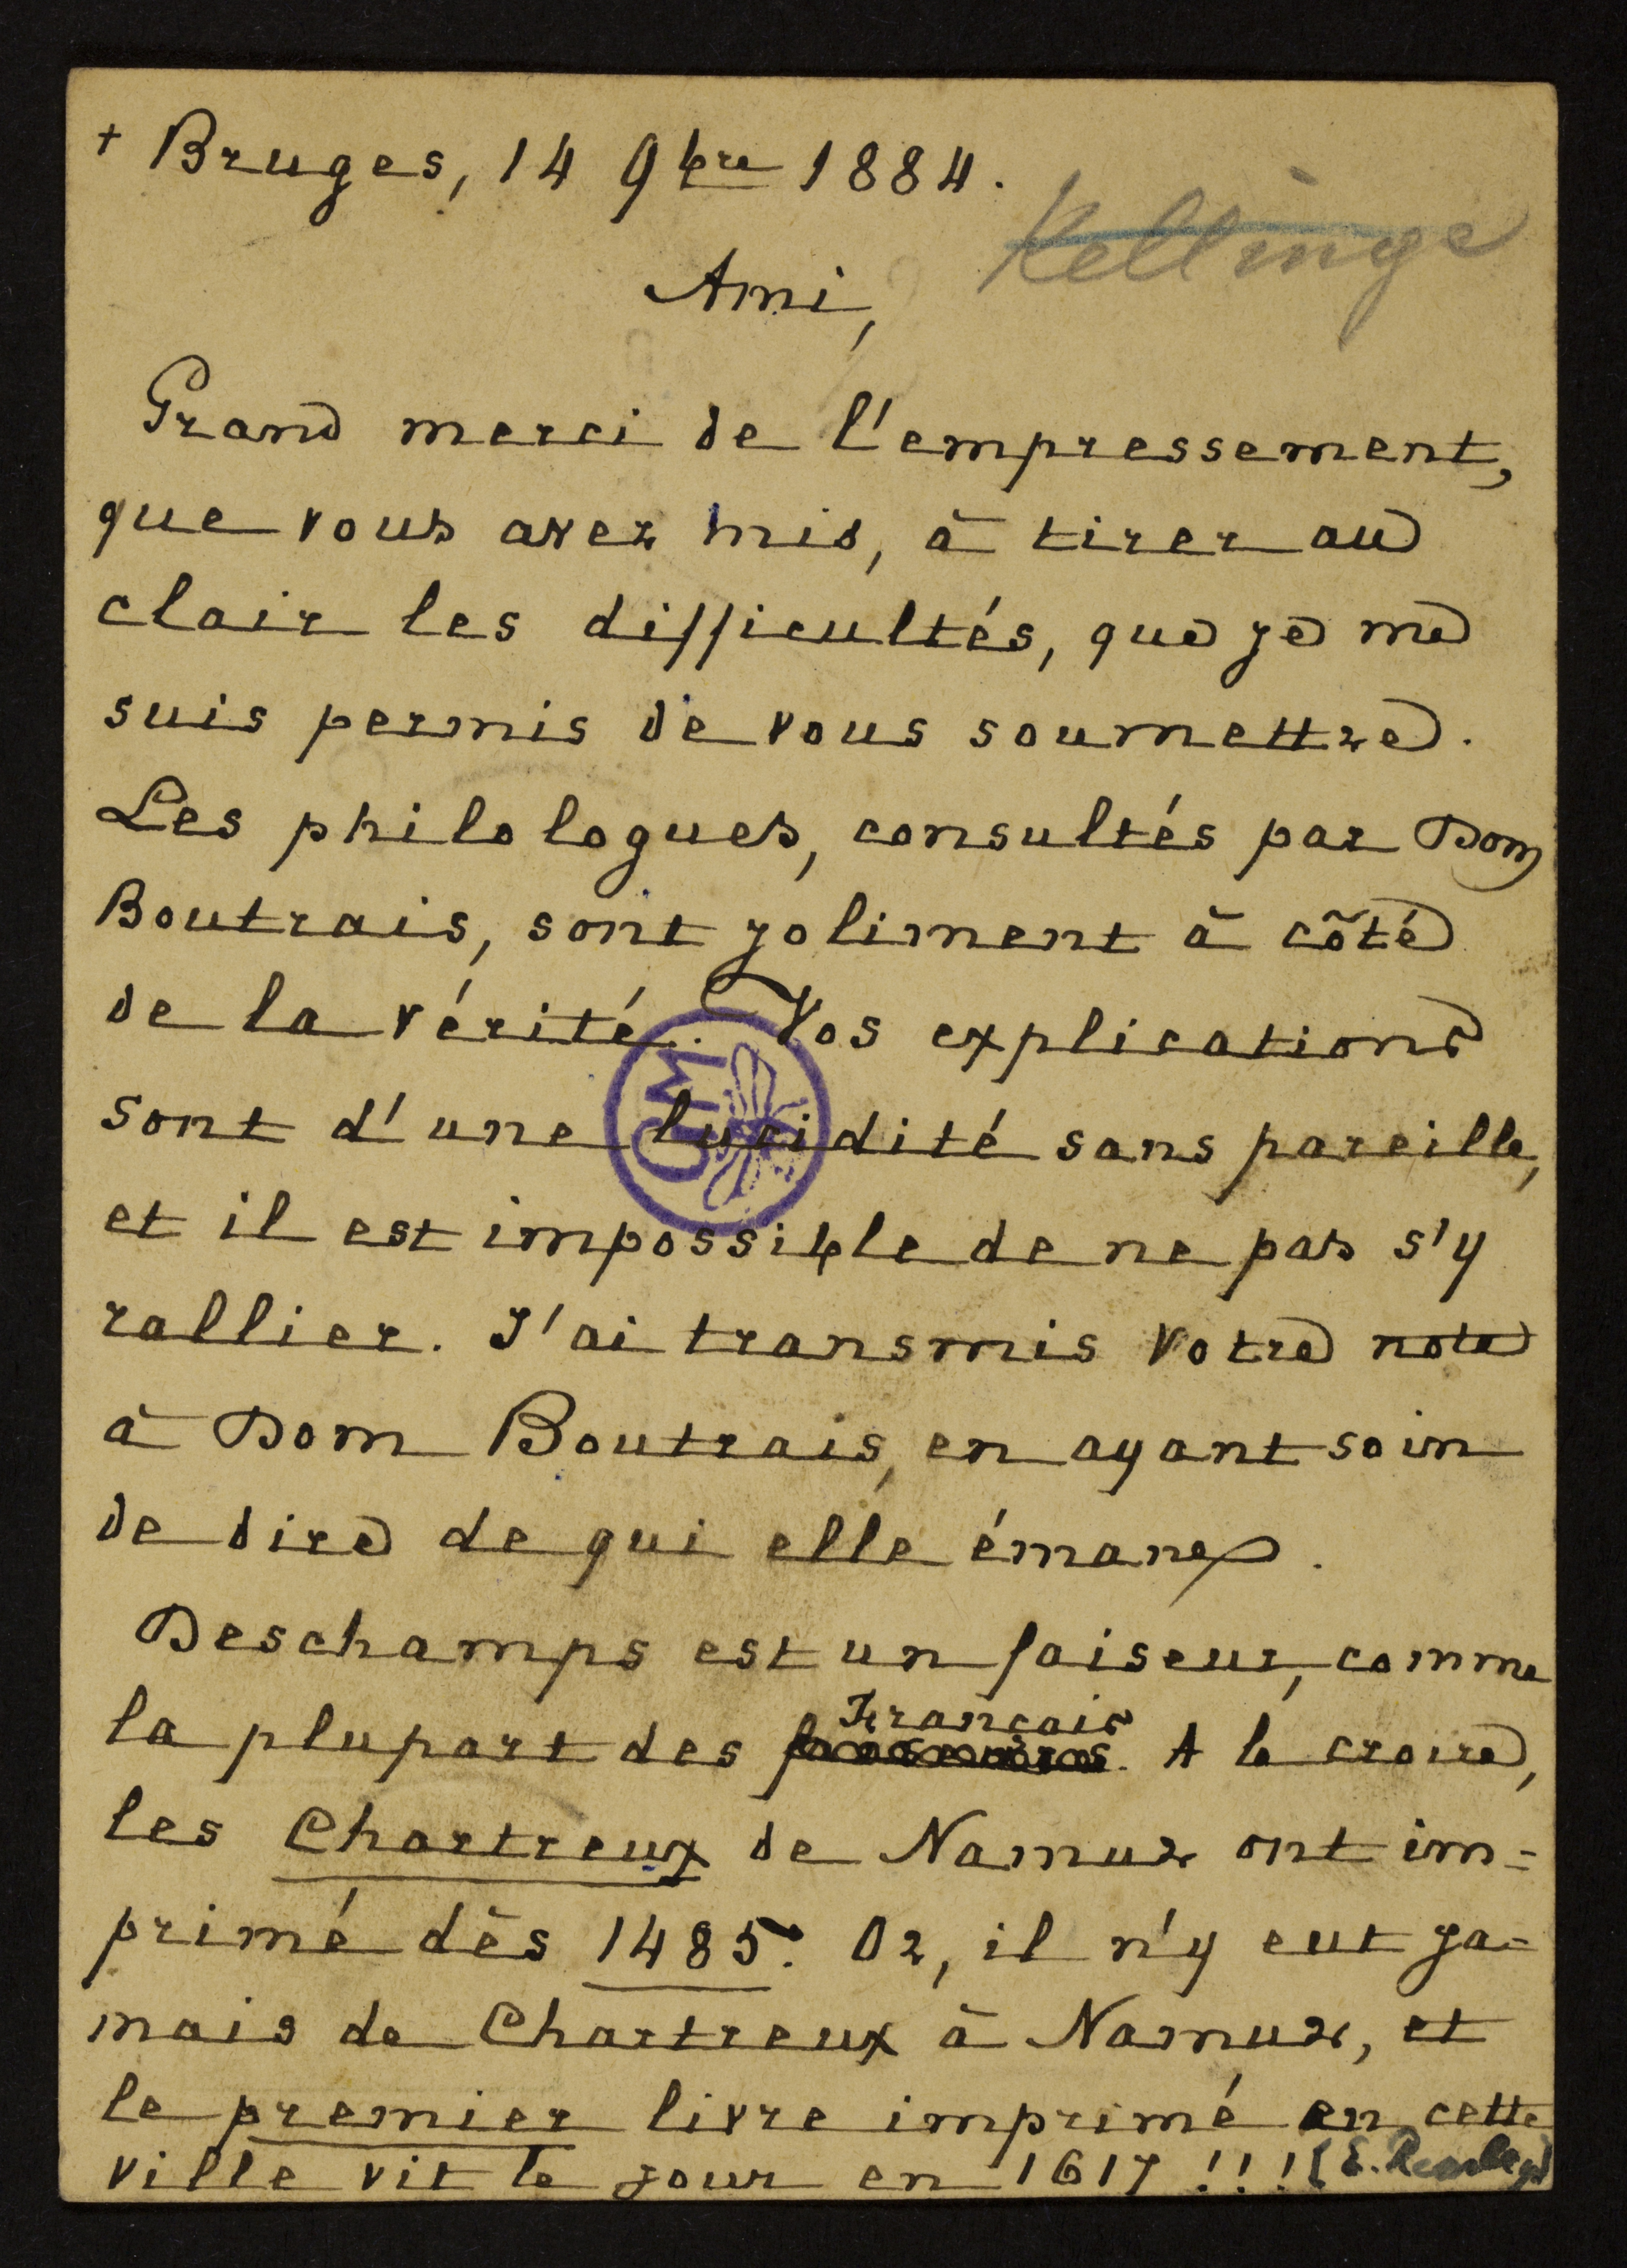 + Bruges, 14 9bre 1884.
Kellinge
Ami,
Grand merci de l'empressement,
que vous avez mis, à tirer au
clair les difficultés, que je me
suis permis de vous soumettre.
Les philologues, consultés par Dom
Boutrais, sont joliment à côté
de la vérité. Vos explications
sont d'une lucidité sans pareille,
et il est impossible de ne pas s'y
rallier. J'ai transmis votre note
à Dom Boutrais, en ayant soin
de dire de qui elle émane.
Deschamps est un faiseur, comme
la plupart des Français. A le croire,
les Chartreux de Namur ont im=
primé dès 1485. Or, il n'y eut ja=
mais de Chartreux à Namur, et
le premier livre imprimé en cette
ville vit le jour en 1617!!! (E.